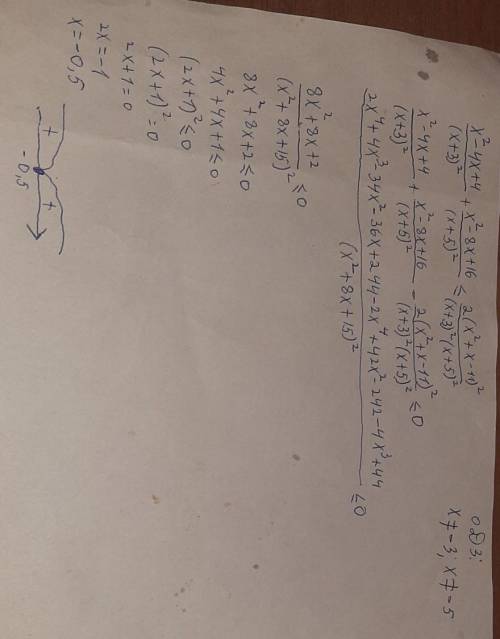 ОДЗ:
x ≠ -3; x ≠ -5
(x²-4x+4)/(x+3)² + (x²-8x+16)/(x+5)² ≤ 2(x²+x-11)²/((x+3)²(x+5)²)
(x²-4x+4)/(x+3)² + (x²-8x+16)/(x+5)² - 2(x²+x-11)²/((x+3)²(x+5)²) ≤ 0
(2x⁴+4x³-34x²-36x+244-2x⁴+42x²-242-4x³+44)/(x²+8x+15)² ≤ 0
(8x²+8x+2)/(x²+8x+15)² ≤ 0
8x²+8x+2 ≤ 0
4x²+4x+1 ≤ 0
(2x+1)² ≤ 0
(2x+1)² = 0
2x+1=0
2x=-1
x=-0,5
+ +
-0,5